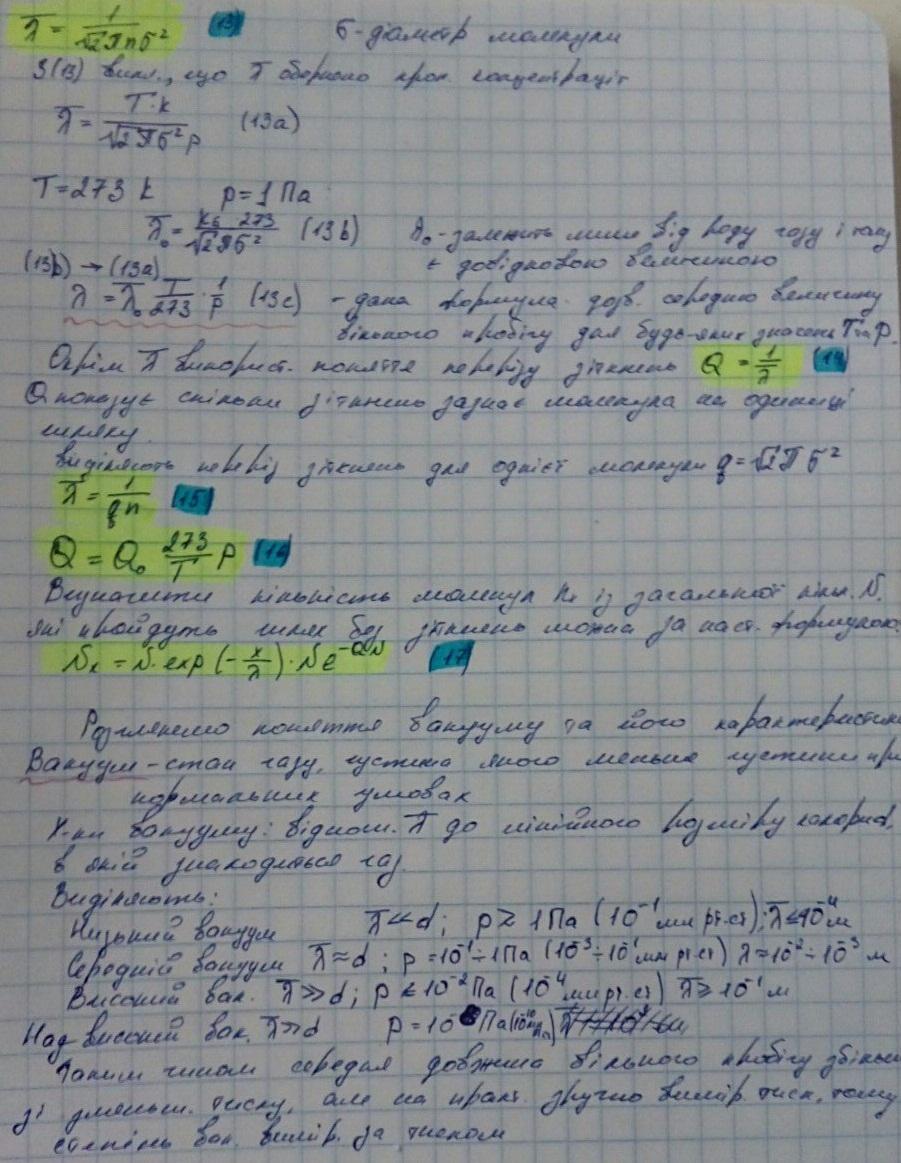 λ̄ = 1/√2πnσ² (13) σ - діаметр молекули
З (13) випл., що λ̄ обернено проп. концентрації
λ̄ = T·k/√2πσ²p (13a)
T = 273 k p = 1 Па
λ̄₀ = kб 273/√2πσ² (13b) λ₀ - залежить лише від роду газу і тому
(13b) → (13a) є довідковою величиною
λ̄ = λ̄₀ T/273 · 1/p (13c) - дана формула дозв. середню величину
вільного пробігу для будь-яких значень T та p.
Окрім λ̄ використ. поняття перерізу зіткнень Q = 1/λ̄ (14)
Q показує скільки зіткнень зазнає молекула на одиниці
шляху.
виділяють переріз зіткнень для однієї молекули q = √2πσ²
λ̄ = 1/qn (15)
Q = Q₀ 273/T p (16)
Визначити кількість молекул Nₓ із загальної кільк. N,
які пройдуть шлях без зіткнень можна за наст. формулою:
Nₓ = N·exp(-x/λ̄)·Ne (17)
Розглянемо поняття вакууму та його характеристики
Вакуум - стан газу, густина якого менша густини при
нормальних умовах
Х-ки вакууму: віднош. λ̄ до лінійного розміру
в якій знаходиться газ.
Виділяють:
Низький вакуум λ̄ ≪ d; p ≥ 1 Па (10⁻¹ мм рт.ст); λ̄ ≤ 10⁻⁴ м
Середній вакуум λ̄ ≈ d; p = 10⁻¹ ÷ 1 Па (10⁻³ ÷ 10⁻¹ мм рт.ст) λ = 10⁻² ÷ 10⁻³ м
Високий вак. λ̄ ≫ d; p < 10⁻² Па (10⁻⁴ мм рт.ст) λ̄ ≥ 10⁻¹ м
Над високий вак. λ̄ ≫ d p = 10 Па
Таким чином середня довжина вільного пробігу збільш
зі зменьш. тиску, але на практ. зручно вимір. тиск, тому
степінь вак. вимір. за тиском